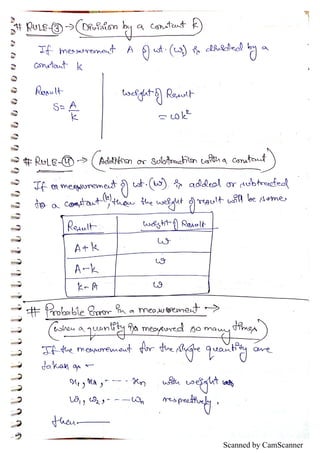 # RULE-③ → (Division by a constant k)
If measurement A of wt. (ω) is divided by a
constant k
Result
weight of Result
S = A/k
= ωk²
# RULE-④ → (Addition or Subtraction with a constant)
If a measurement of wt. (ω) is added or subtracted
to a constant (k), then the weight of result will be same
Result | weight of Result
A+k | ω
A-k | ω
k-A | ω
# Probable Error in a measurement →
(when a quantity is measured so many times)
If the measurement for the single quantity are
taken as -
x₁, x₂, ---- xₙ with weight
ω₁, ω₂, --- ωₙ respectively.
then —
Scanned by CamScanner